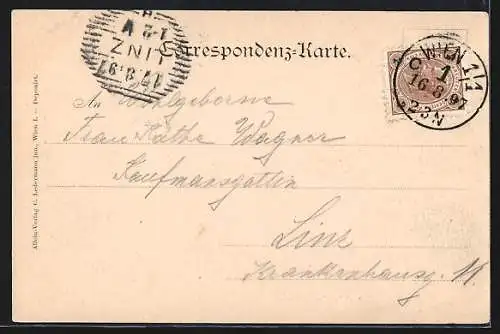 Correspondenz-Karte.
LINZ
17.8.97
1-2 V
WIEN 1/1
C 1
16 8 97
2-3N
An Wohlgeborne
Frau Käthe Wagner
Kaufmansgattin
Linz
Krankenhausg. 11.
Alleín-Verlag C. Ledermann jun., Wien I. — Deponirt.